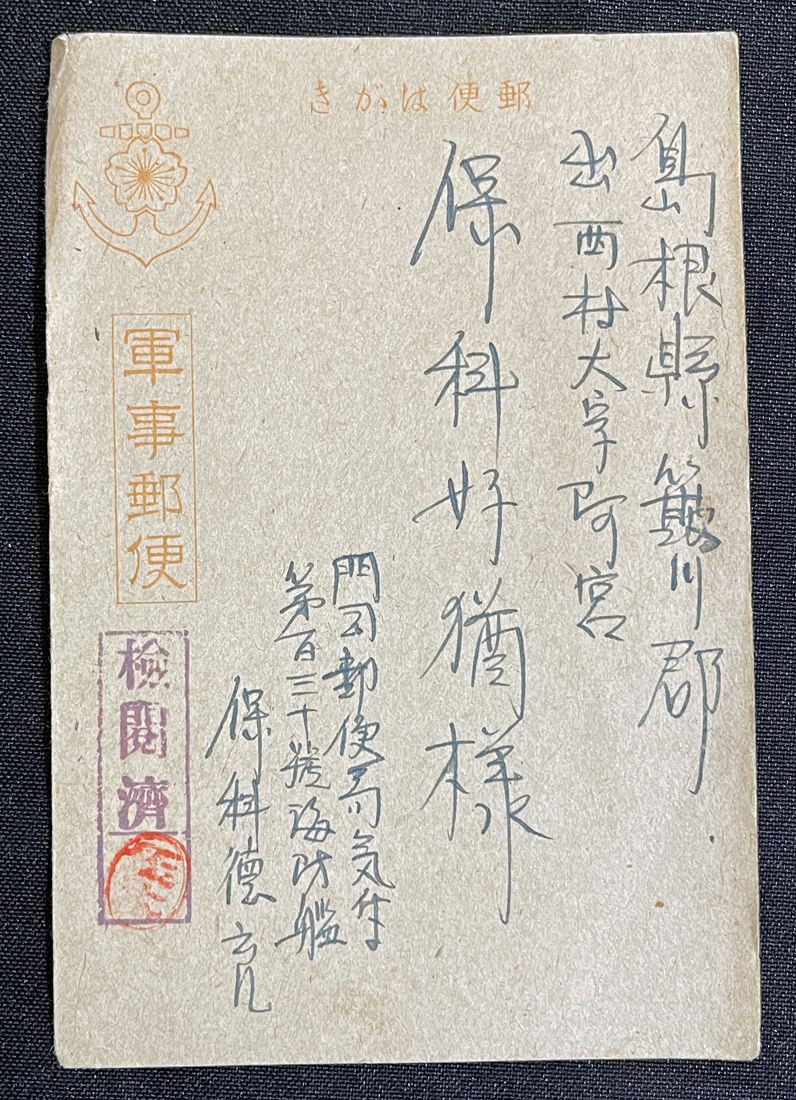 郵便はがき
島根縣簸川郡
出西村大字阿宮
保科好猶様
門司郵便局気付
第百三十號海防艦
保科徳
軍事郵便
檢閲濟